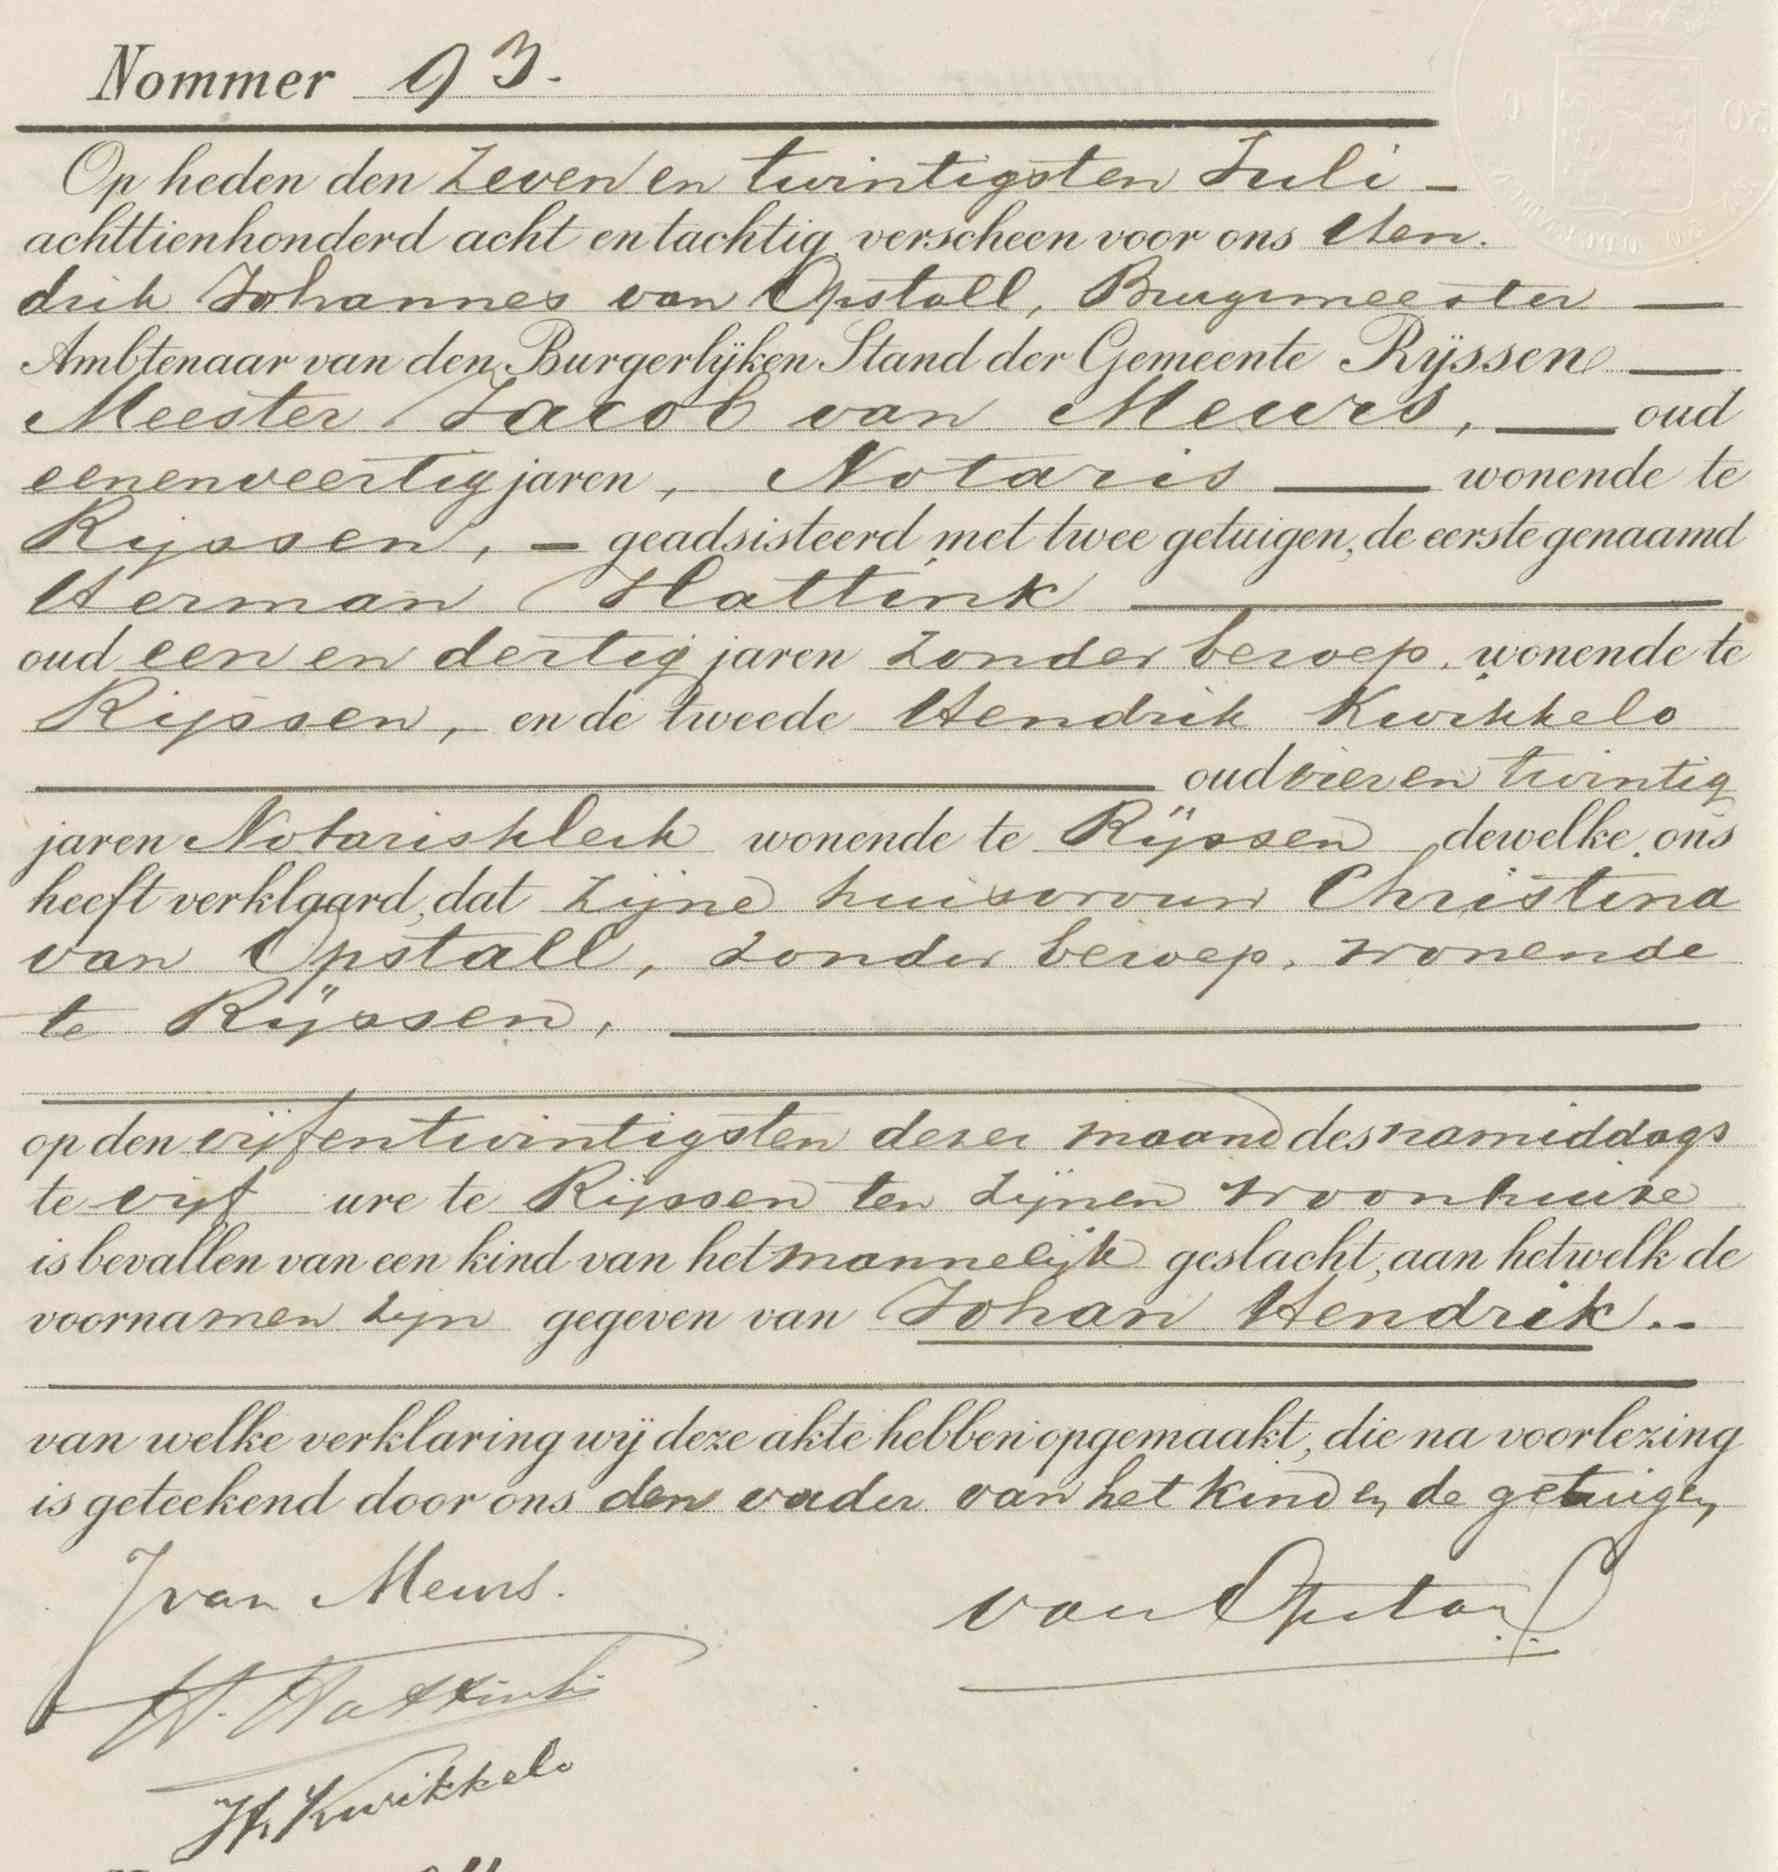 Nommer 93.
Op heden den zeven en twintigsten Juli
achttienhonderd acht en tachtig, verscheen voor ons Hen.
drik Johannes van Opstall, Burgemeester
Ambtenaar van den Burgerlijken Stand der Gemeente Rijssen
Meester Jacob van Meurs, oud
eenenveertig jaren, Notaris wonende te
Rijssen, geadsisteerd met twee getuigen, de eerste genaamd
Herman Hattink
oud een en dertig jaren zonder beroep, wonende te
Rijssen, en de tweede Hendrik Kwikkelo
oud vier en twintig
jaren Notarisklerk wonende te Rijssen dewelke ons
heeft verklaard, dat zijne huisvrouw Christina
van Opstall, zonder beroep, wonende
te Rijssen,
op den vijfentwintigsten dezer maand des namiddags
te vijf ure te Rijssen ten zijnen woonhuize
is bevallen van een kind van het mannelijk geslacht, aan hetwelk de
voornamen zijn gegeven van Johan Hendrik.
van welke verklaring wij deze akte hebben opgemaakt, die na voorlezing
is geteekend door ons den vader van het kind en de getuigen
J van Meurs.
van Opstall
H. Hattink
H. Kwikkelo